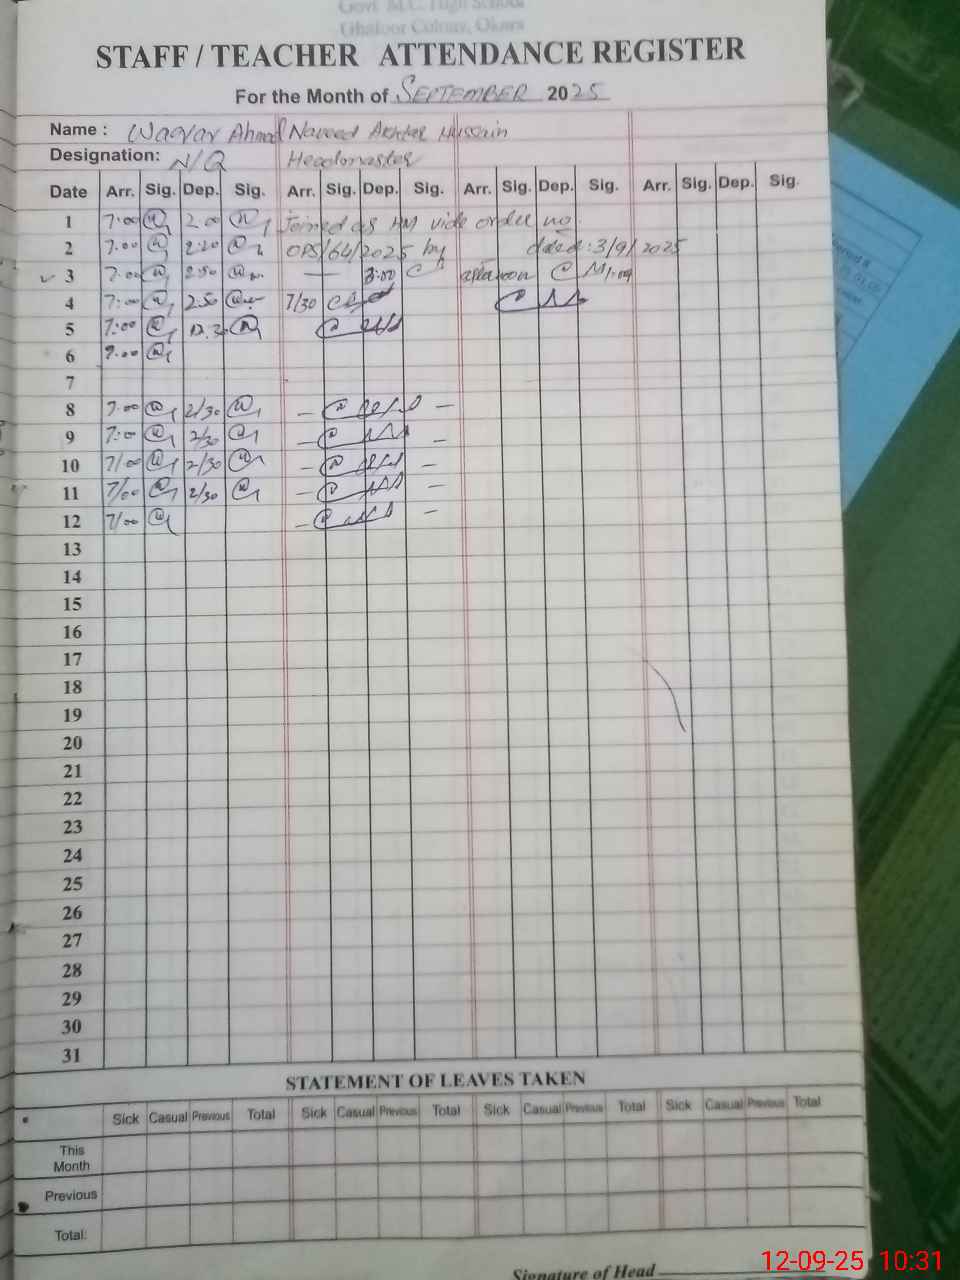 Govt. M.C. High School
Ghafoor Colony, Okara
STAFF / TEACHER ATTENDANCE REGISTER
For the Month of SEPTEMBER 2025
Name : Waqar Ahmad Naveed Akhtar Hussain
Designation: N/Q Headmaster
Date Arr. Sig. Dep. Sig. Arr. Sig. Dep. Sig. Arr. Sig. Dep. Sig. Arr. Sig. Dep. Sig.
1 7:00 2:00 Joined as HM vide order no.
2 7:00 2:20 OPS/64/2025 by dated:3/9/2025
3 7:00 2:50 — 3:00
4 7:00 2.50 7/30
5 7:00
6 7:00
7
8 7:00 2/30 — —
9 7:00 2/30 — —
10 7/00 2/30 — —
11 7/00 2/30 — —
12 7/00 — —
13
14
15
16
17
18
19
20
21
22
23
24
25
26
27
28
29
30
31
STATEMENT OF LEAVES TAKEN
Sick Casual Previous Total Sick Casual Previous Total Sick Casual Previous Total Sick Casual Previous Total
This
Month
Previous
Total:
Signature of Head
12-09-25 10:31